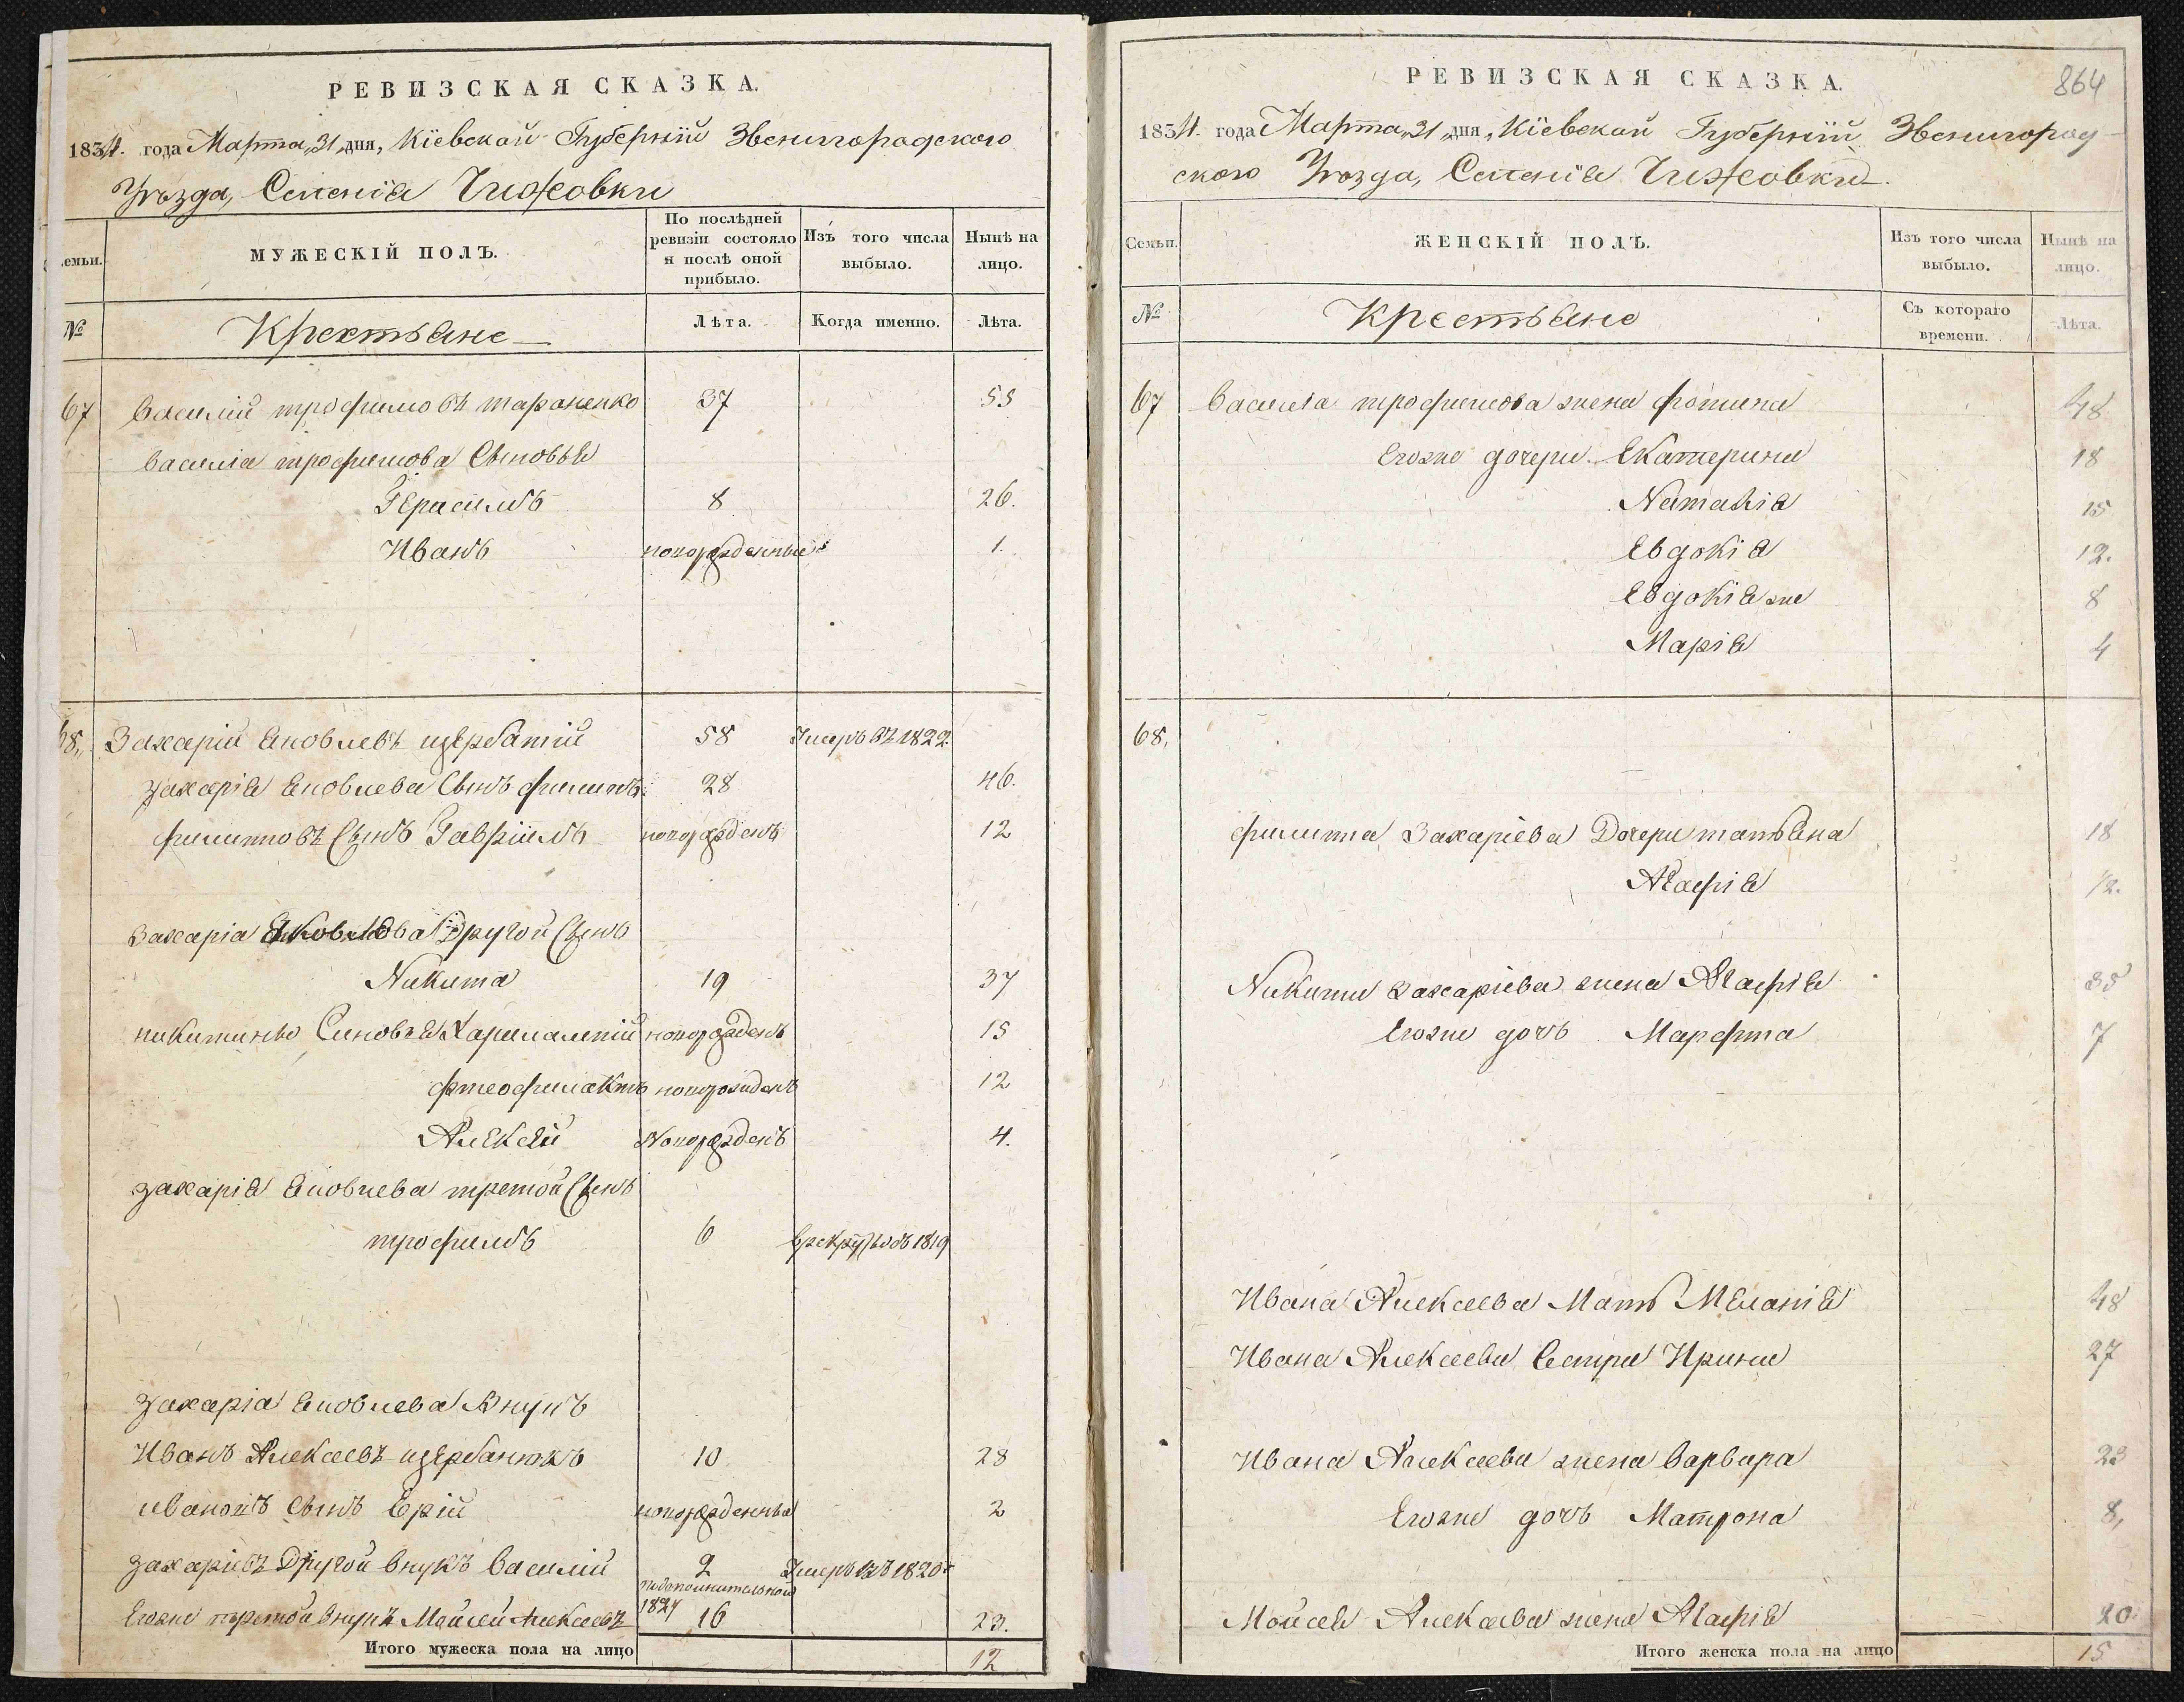 РЕВИЗСКАЯ СКАЗКА.
1834. года Марта „31 дня, Кіевской Губерніи Звенигородского
Уѣзда, Селенія Чижовки
Семьи.
МУЖЕСКІЙ ПОЛЪ.
По послѣдней ревизіи состояло и послѣ оной прибыло.
Изъ того числа выбыло.
Нынѣ на лицо.
№
Крестьяне
Лѣта.
Когда именно.
Лѣта.
67 Василий трофимовъ тараненко 37 55
Василія трофимова Сыновья
Герасимъ 8 26.
Иванъ новорожденные 1.
68,, Захарій Яковлевъ щербатій 58 Умеръ въ 1822.
Захарія Яковлева Сынъ филипъ 28 46.
филиповъ Сынъ Гавріилъ новорожденъ 12
Захарія Яковлева Другой Сынъ
Никита 19 37
никитины Синовья Харлампій новорожденъ 15
фтеофилактъ новорожденъ 12
Алексей Новорожденъ 4.
Захарія Яковлева третой Сынъ
трофимъ 6 1819
Захарія Яковлева Внукъ
Иванъ Алексеевъ щербанюкъ 10 28
ивановъ сынъ Юрій новорожденны 2
Захаріевъ Другой внукъ Василій 2 Умеръ въ 1820
1827
Егоже третой внукъ Мойсей Алексеевъ 16 23.
Итого мужеска пола на лицо 12
РЕВИЗСКАЯ СКАЗКА.
864
1834. года Марта „31 дня, Кіевской Губерніи Звенигород-
ского Уѣзда, Селенія Чижовки.
Семьи.
ЖЕНСКІЙ ПОЛЪ.
Изъ того числа выбыло.
Нынѣ на лицо.
№
Крестьяне
Съ котораго времени.
Лѣта.
67 Василія трофимова жена фотина 48
Егоже дочери Екатерина 18
Наталія 15
Евдокія 12.
Евдокія же 8
Марія 4
68,
филиппа Захаріева Дочери татьяна 18
Агафія 12.
Никиты Захаріева жена Агафія 35
Егоже дочь Марфта 7
Ивана Алексеева Мать Меланія 48
Ивана Алексеева Сестра Ирина 27
Ивана Алексеева жена Варвара 23
Егоже дочь Матрона 8,
Мойсея Алексеева жена Агафія 20.
Итого женска пола на лицо 15